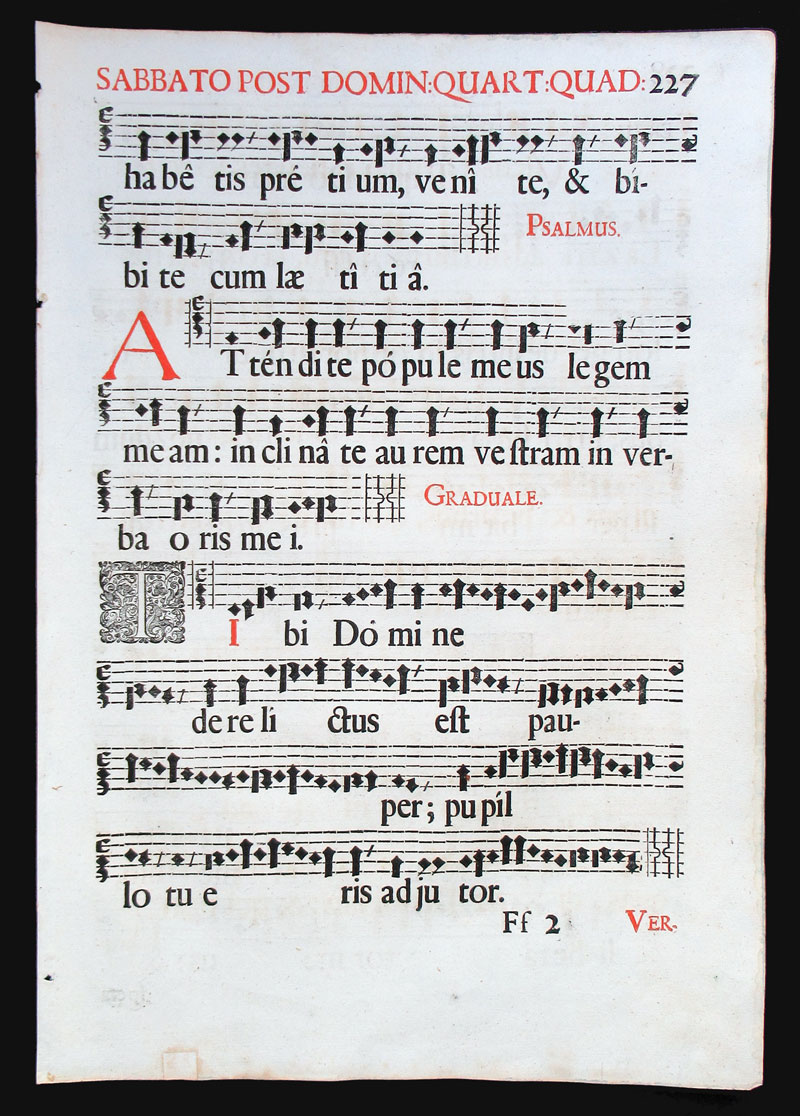 SABBATO POST DOMIN:QUART:QUAD: 227
ha bê tis pré ti um, ve nî te, & bí-
bi te cum læ tî ti â. PSALMUS.
AT tén di te pó pu le me us le gem
me am: in cli nâ te au rem ve ſtram in ver-
ba o ris me i. GRADUALE.
TI bi Dó mi ne
de re lí ctus eſt pau-
per; pu píl
lo tu e ris ad ju tor.
Ff 2 VER-